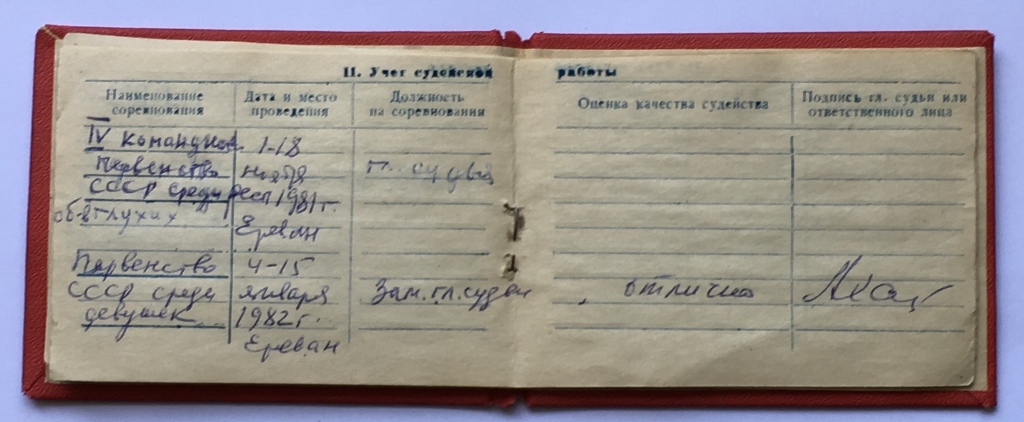 II. Учет судейской работы
Наименование соревнования
Дата и место проведения
Должность на соревновании
Оценка качества судейства
Подпись гл. судьи или ответственного лица
IV командное 1-18
первенство ноября гл. судья
СССР среди респ 1981г.
об-в глухих
Ереван
Первенство 4-15
СССР среди января Зам. гл. судьи отлично
девушек 1982г.
Ереван